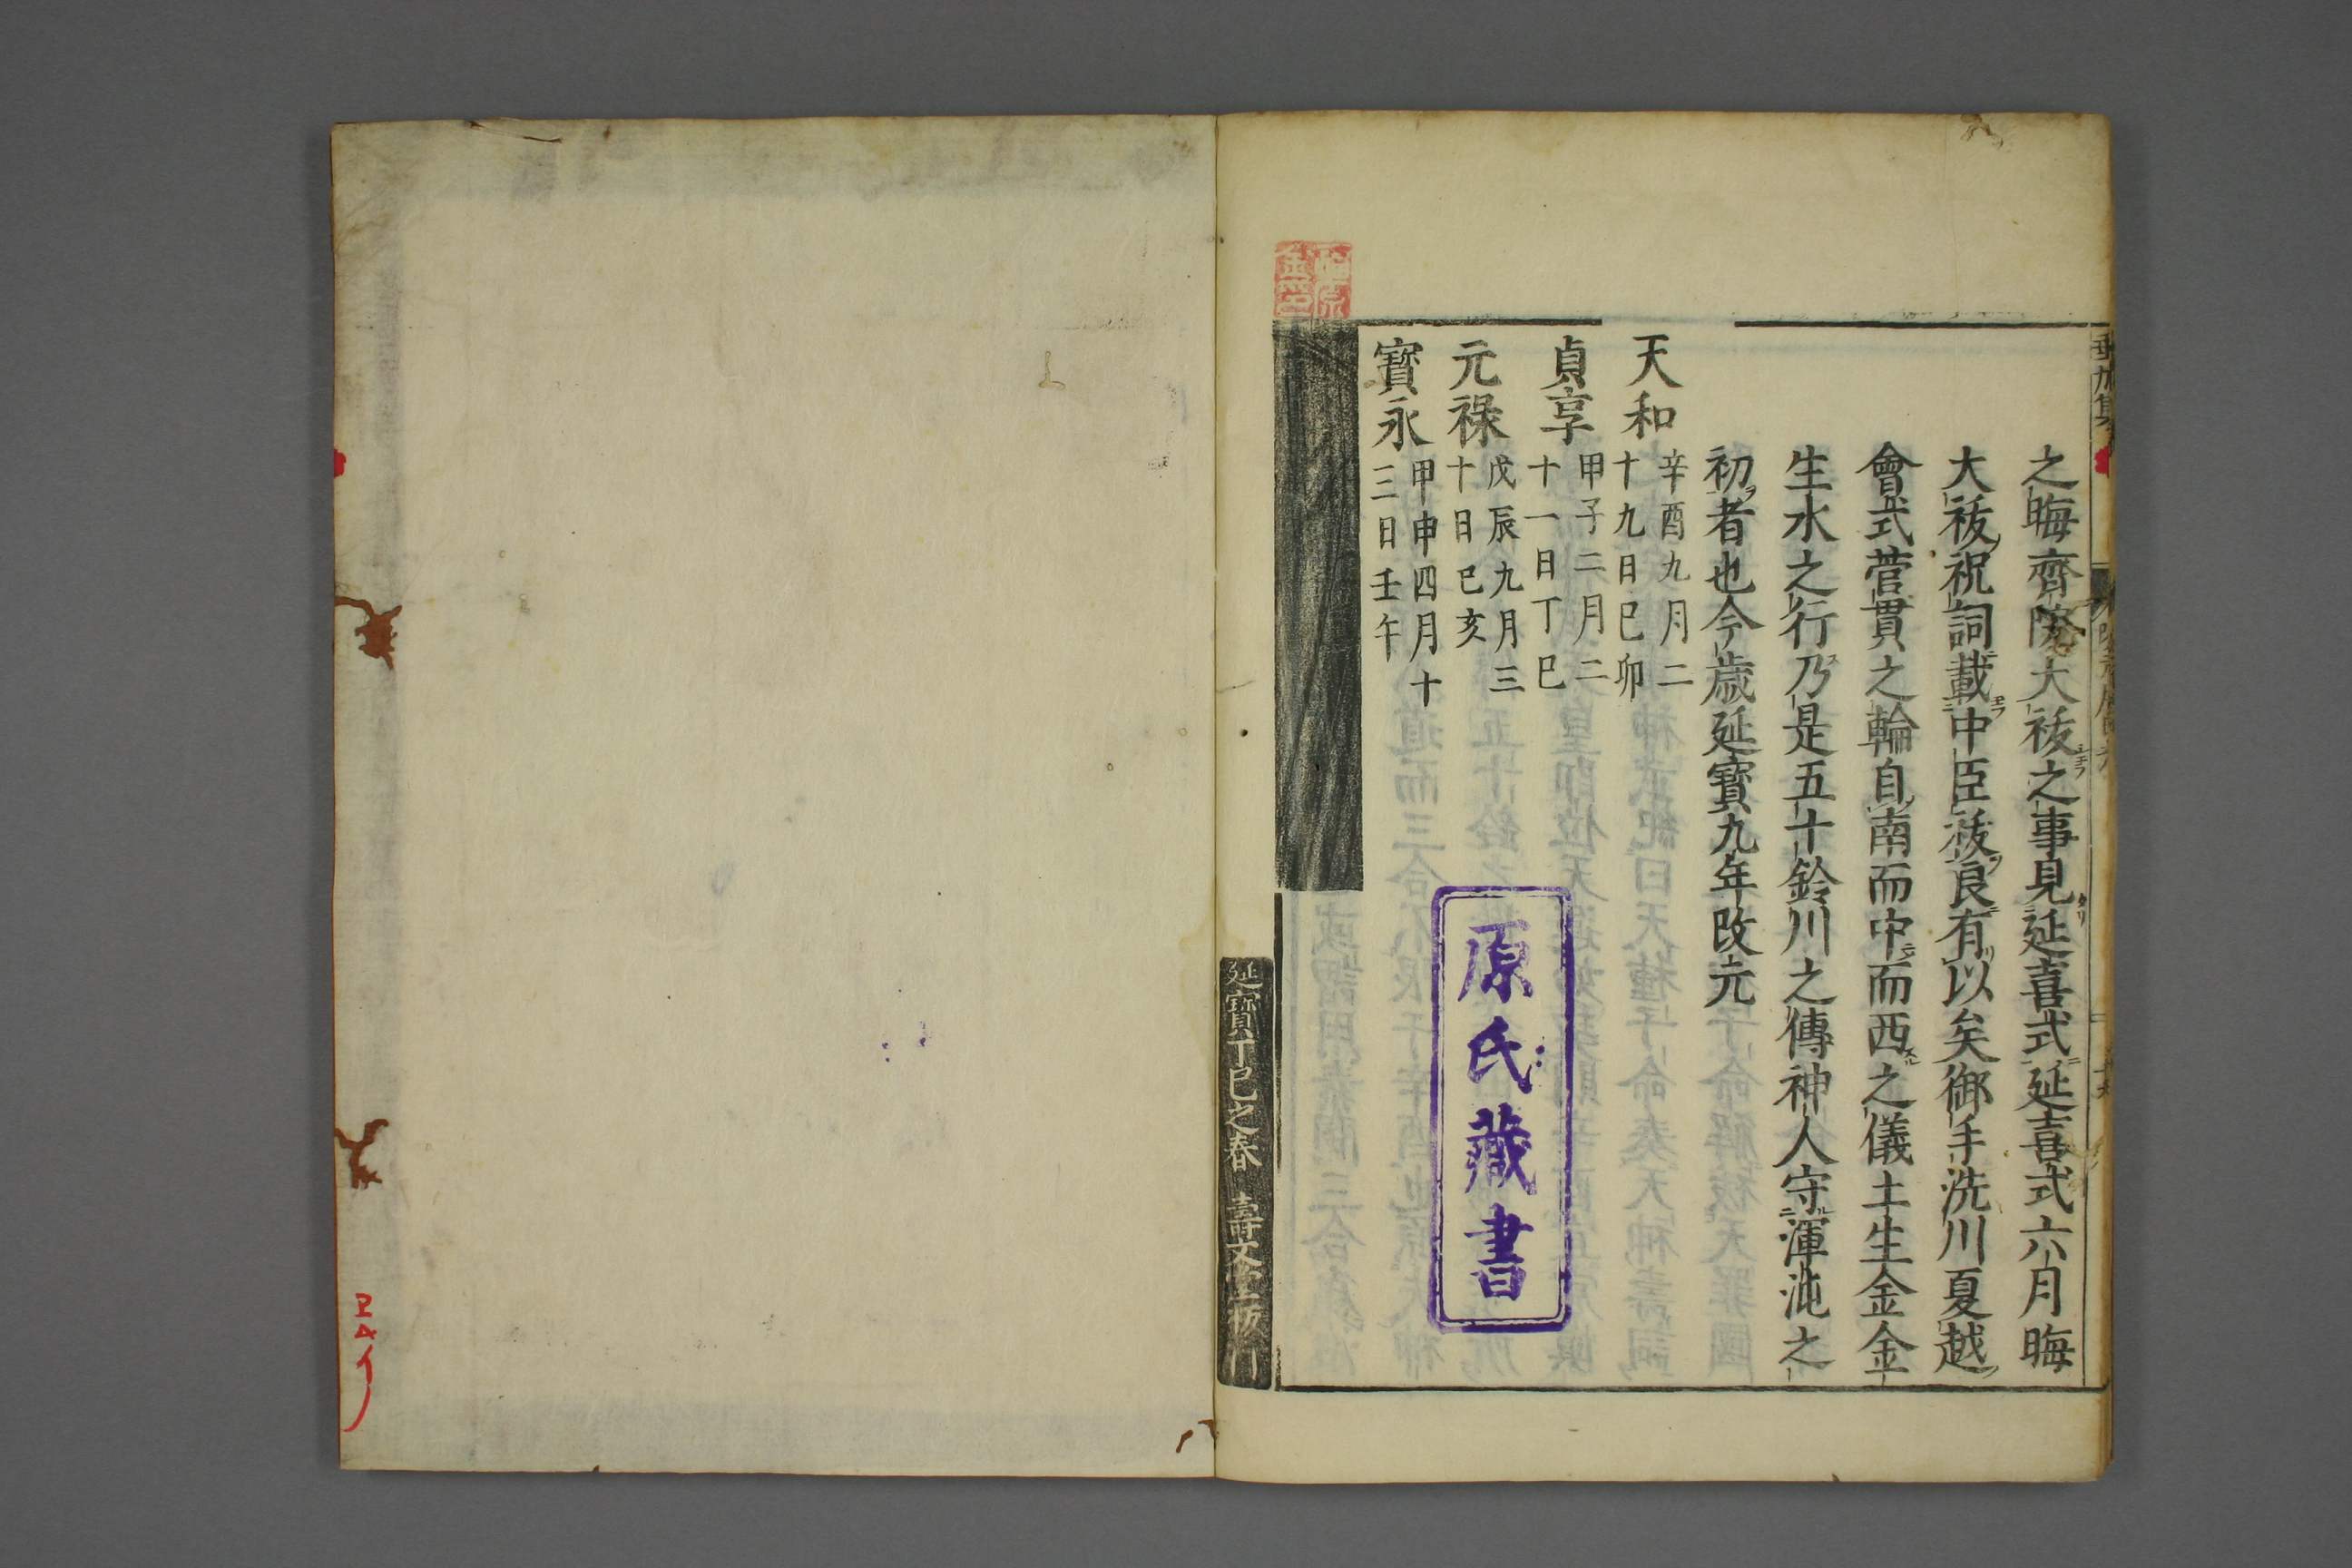 之晦齊院大祓之事見延喜式延喜式六月晦
大祓祝詞載中臣祓良有以矣御手洗川夏越
會式菅貫之輪自南而中而西之儀土生金金
生水之行乃是五十鈴川之傳神人守渾沌之
初者也今歳延寶九年改元
天和
辛酉九月二
十九日己卯
貞享
甲子二月二
十一日丁巳
元祿
戊辰九月三
十日己亥
寶永
甲申四月十
三日壬午
原氏藏書
延寶丁巳之春 壽文堂板行